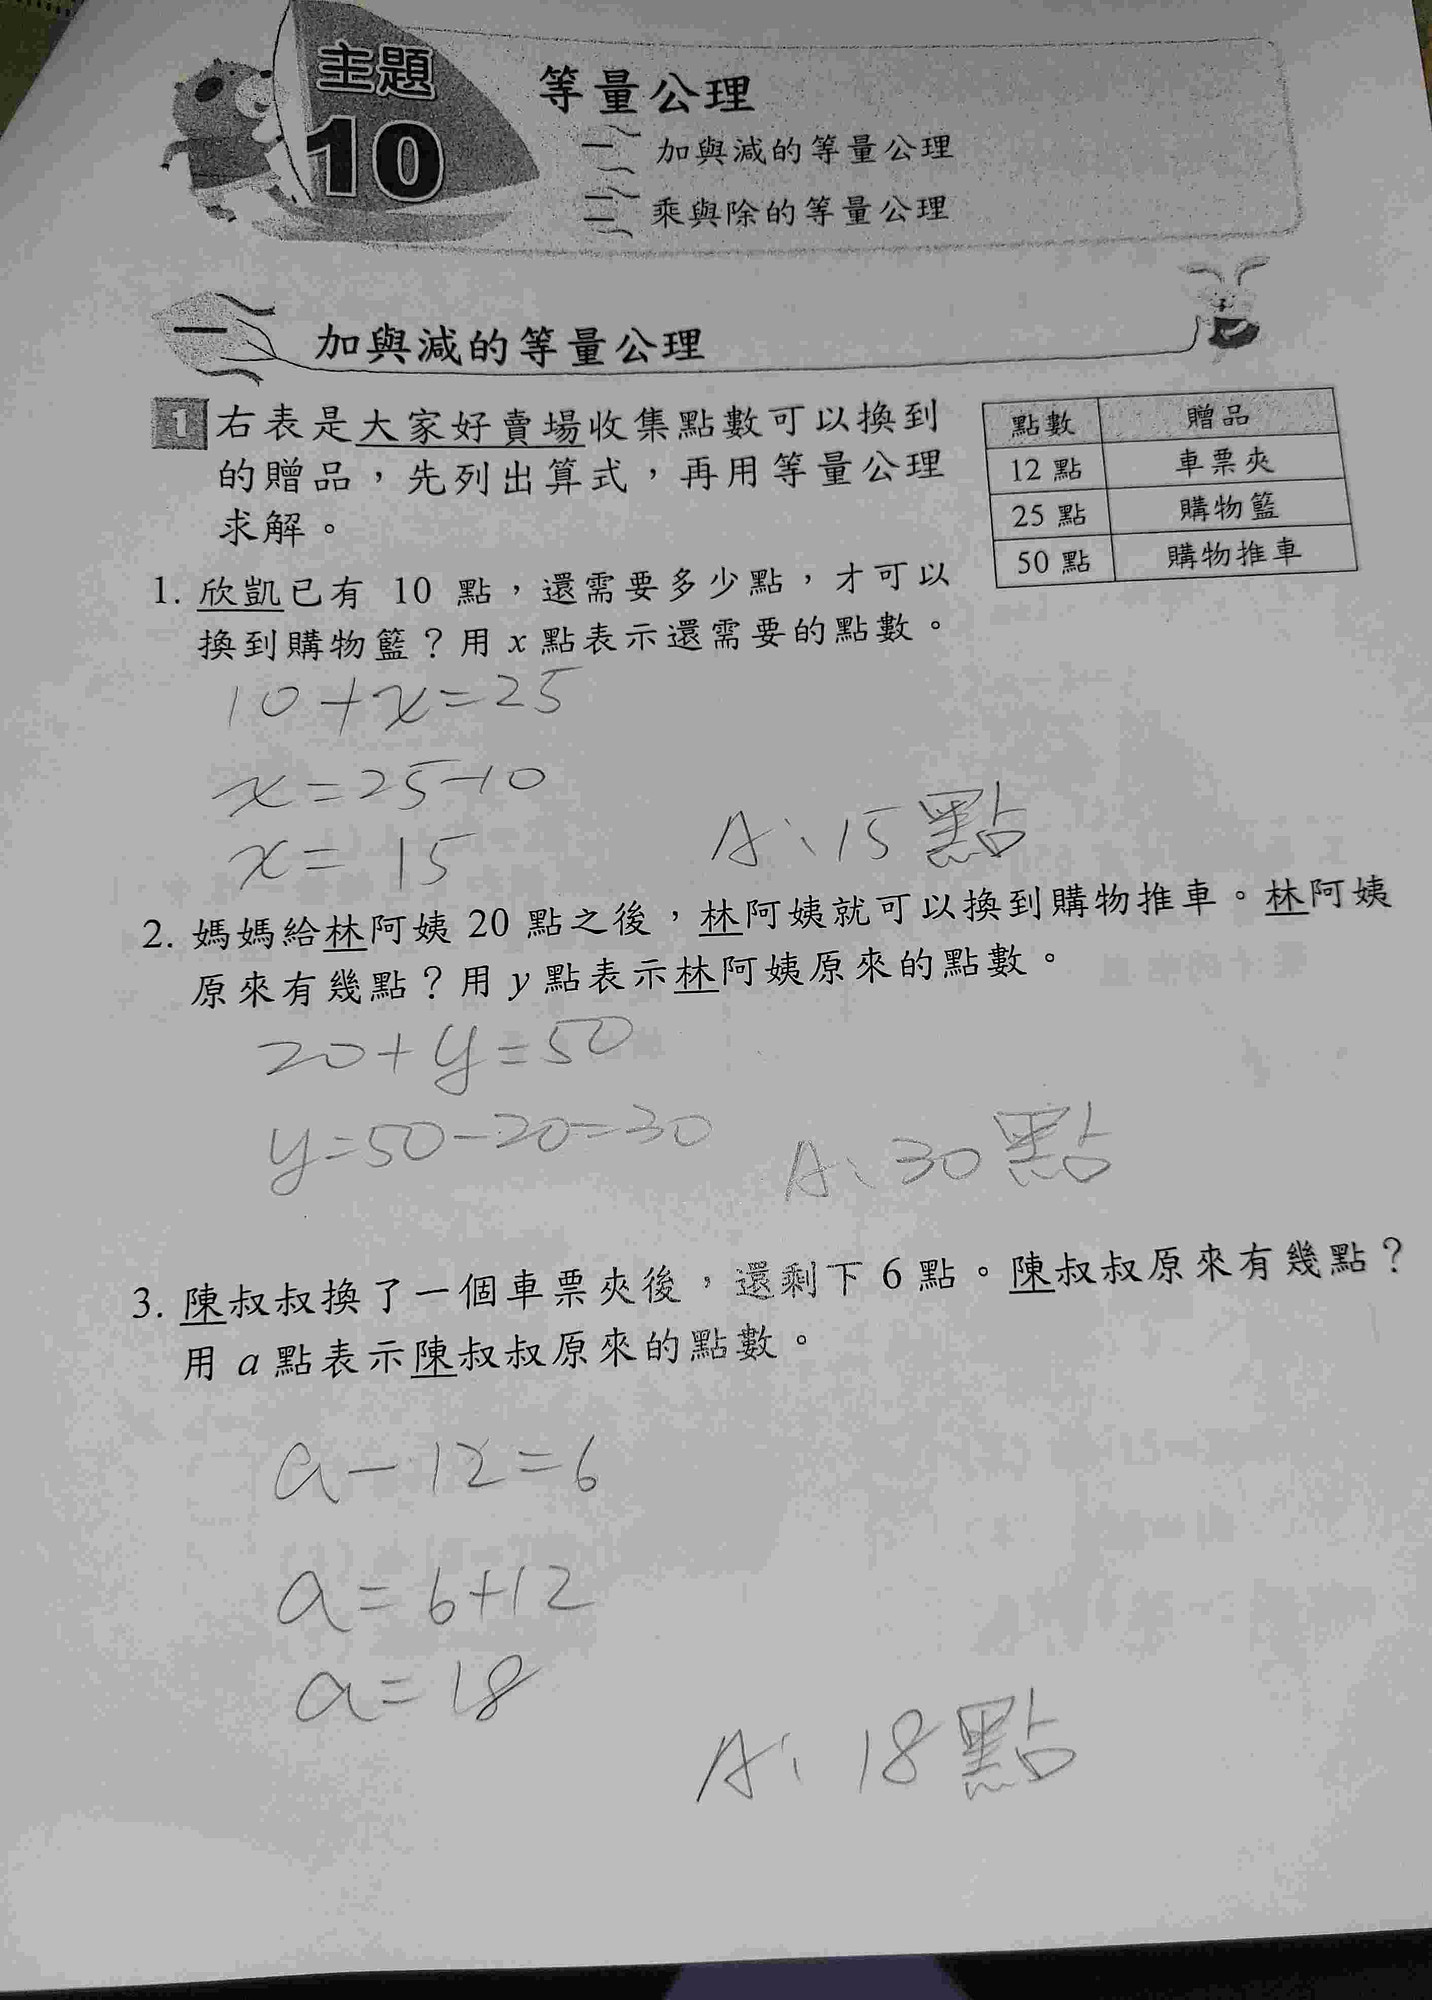 主題
10
等量公理
一 加與減的等量公理
二 乘與除的等量公理
一 加與減的等量公理
1 右表是大家好賣場收集點數可以換到
的贈品，先列出算式，再用等量公理
求解。
點數 贈品
12 點 車票夾
25 點 購物籃
50 點 購物推車
1. 欣凱已有 10 點，還需要多少點，才可以
換到購物籃？用 x 點表示還需要的點數。
10+x=25
x=25-10
x=15 A:15點
2. 媽媽給林阿姨 20 點之後，林阿姨就可以換到購物推車。林阿姨
原來有幾點？用 y 點表示林阿姨原來的點數。
20+y=50
y=50-20=30 A:30點
3. 陳叔叔換了一個車票夾後，還剩下 6 點。陳叔叔原來有幾點？
用 a 點表示陳叔叔原來的點數。
a-12=6
a=6+12
a=18
A:18點